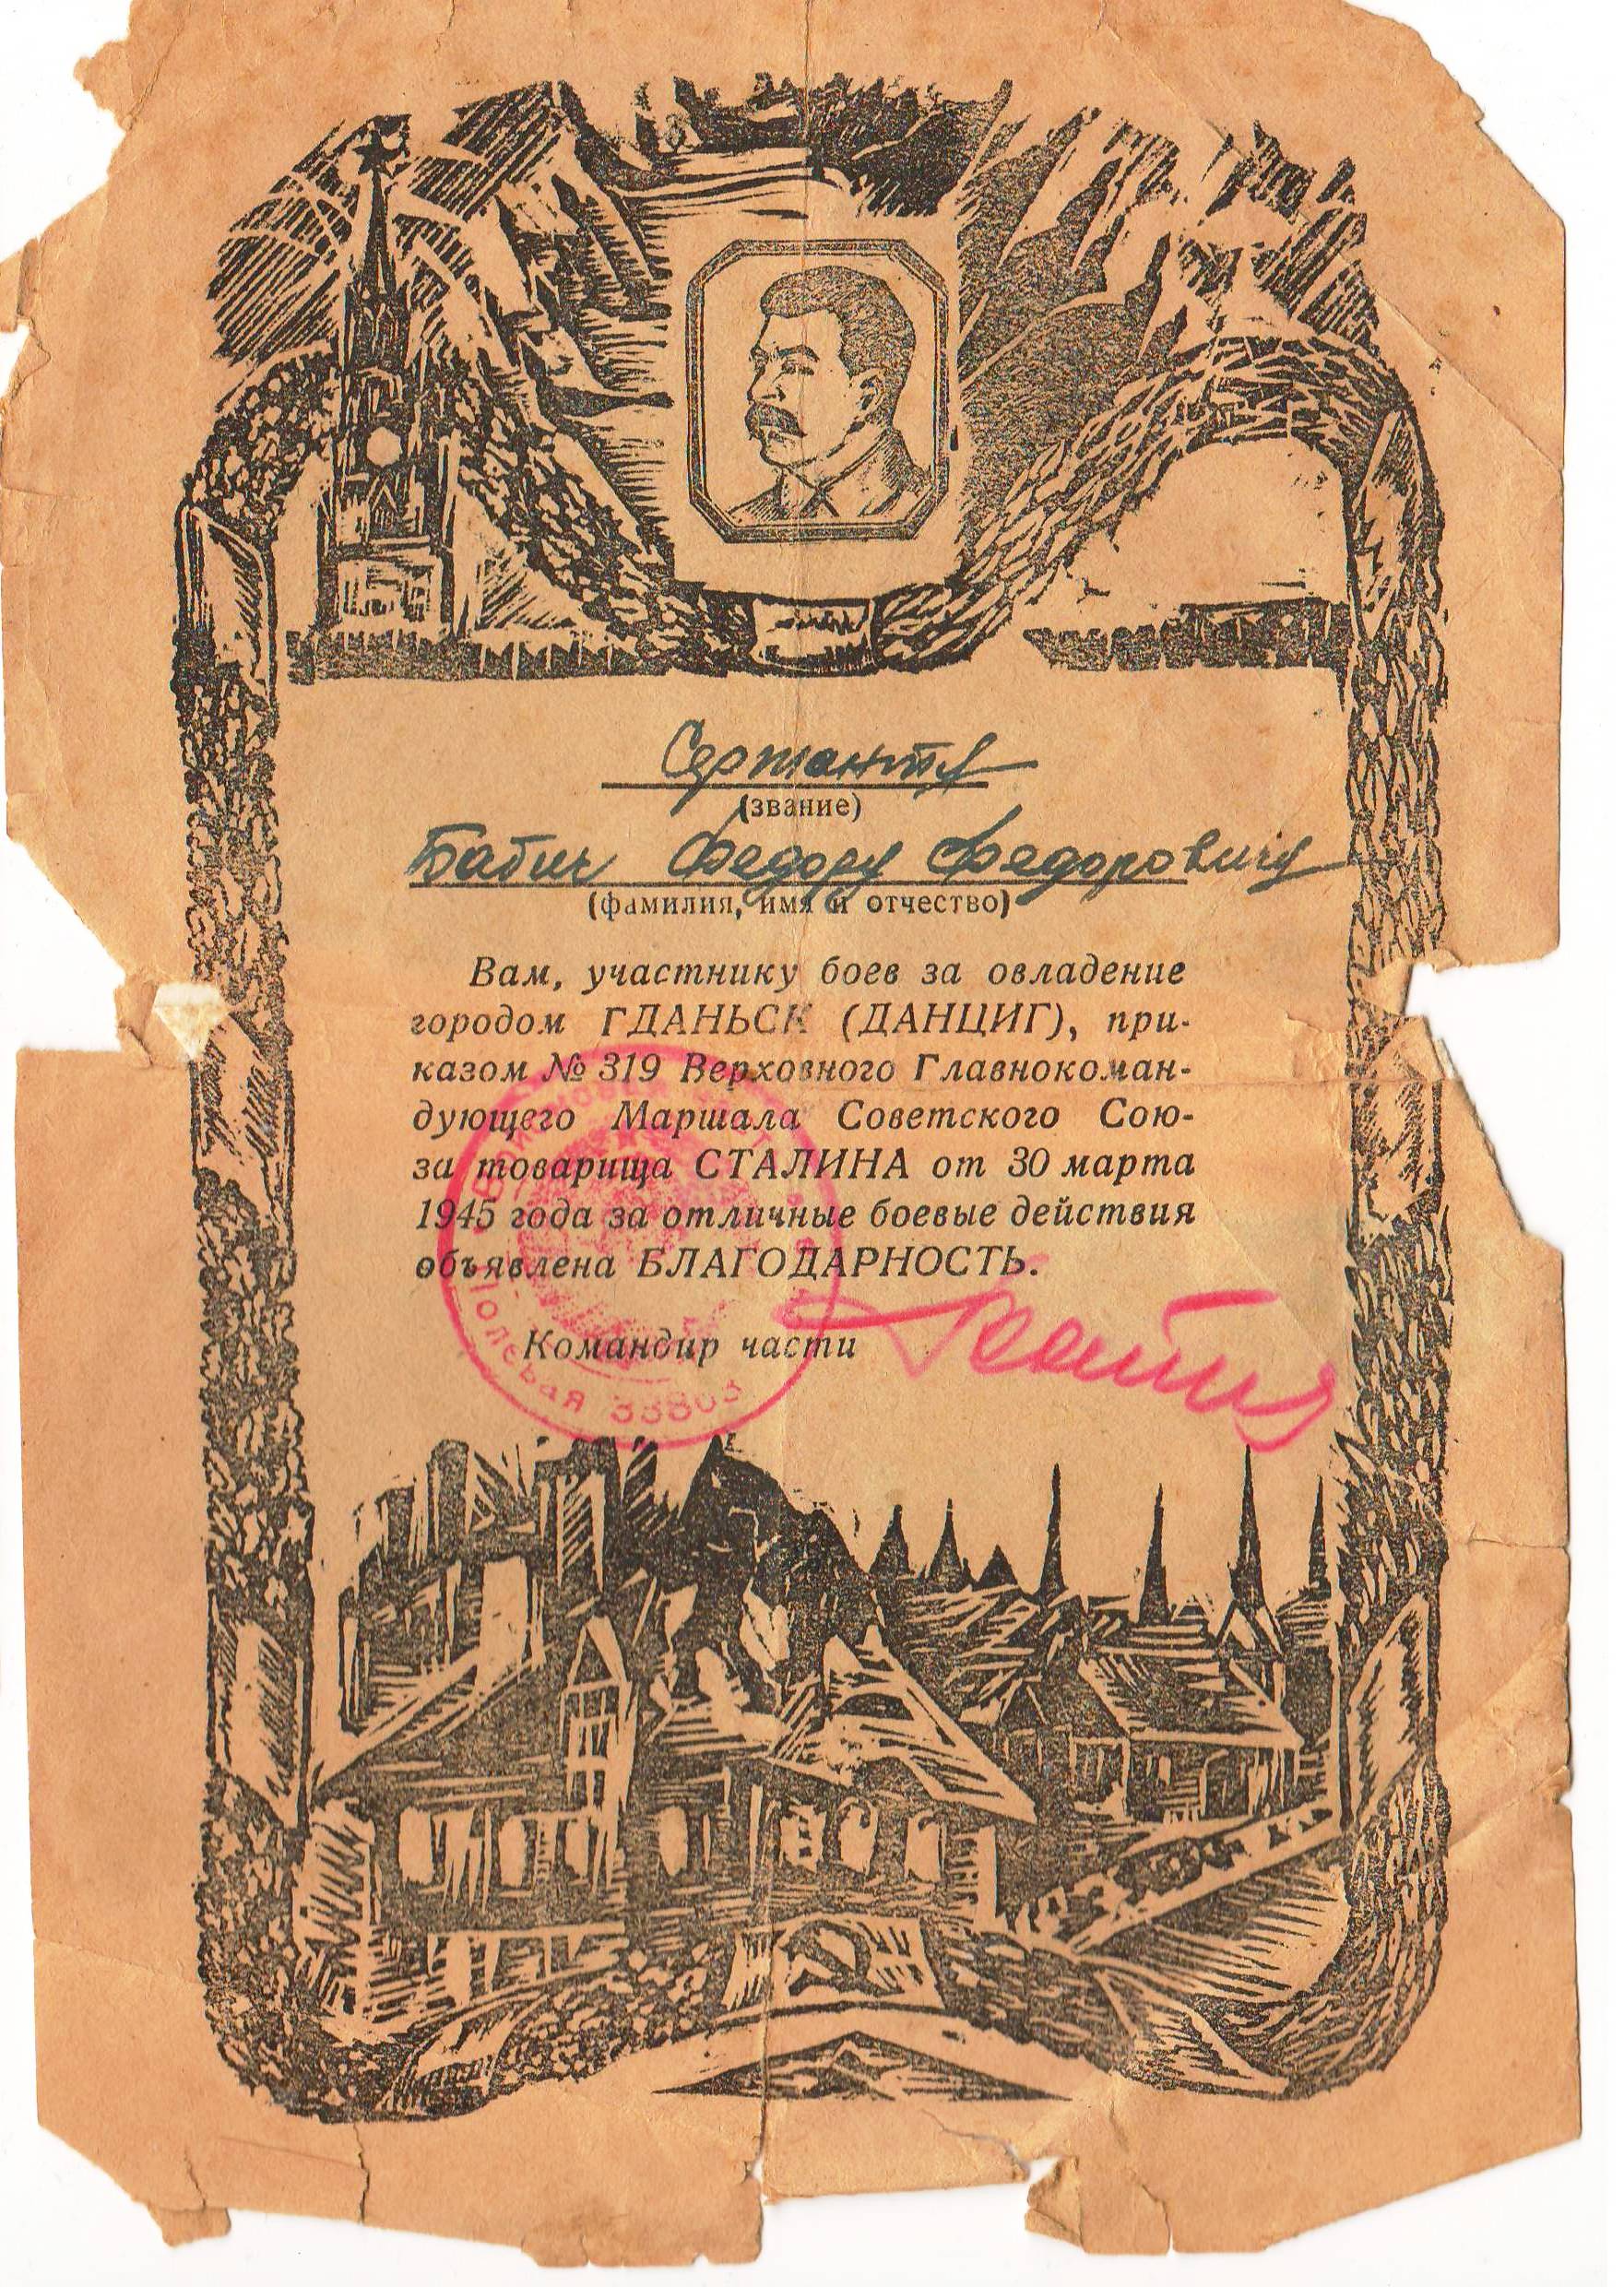 Сержанту
(звание)
Бабич Федору Федоровичу
(фамилия, имя и отчество)
Вам, участнику боев за овладение
городом ГДАНЬСК (ДАНЦИГ), при-
казом № 319 Верховного Главнокоман-
дующего Маршала Советского Сою-
за товарища СТАЛИНА от 30 марта
1945 года за отличные боевые действия
объявлена БЛАГОДАРНОСТЬ.
Командир части
Полевая 33803